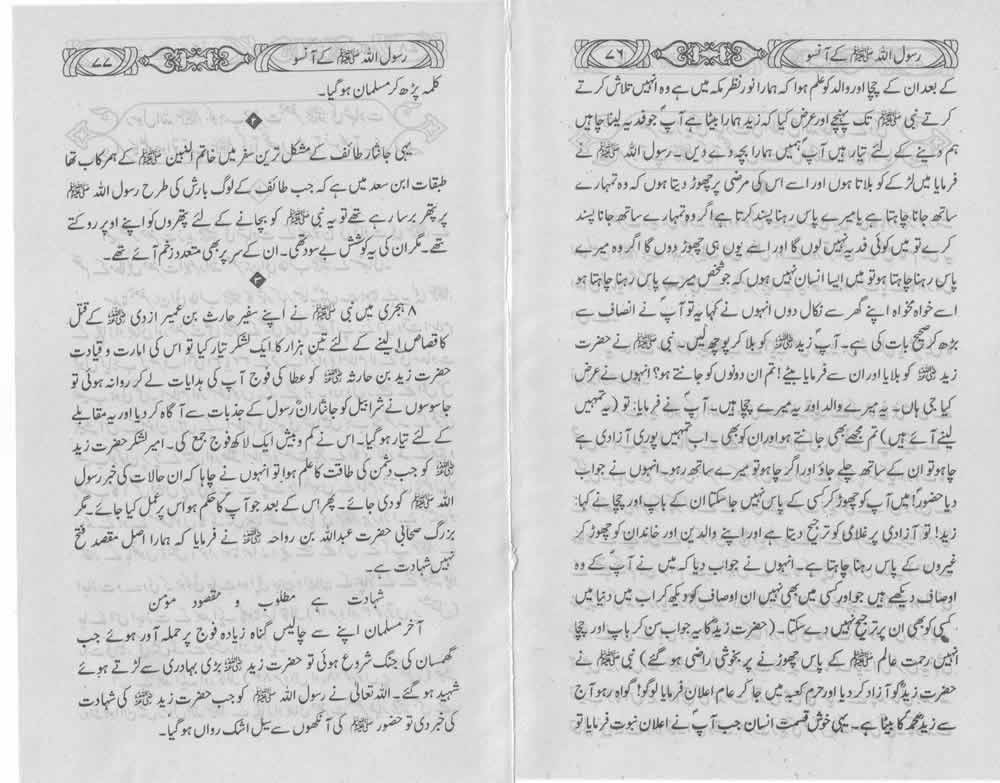 رسول اللہ ﷺ کے آنسو
۷۶
کے بعد ان کے چچا اور والد کو علم ہوا کہ ہمارا نور نظر مکہ میں ہے وہ انہیں تلاش کرتے
کرتے نبی ﷺ تک پہنچے اور عرض کیا کہ زید ہمارا بیٹا ہے آپ جو فدیہ لینا چاہیں
ہم دینے کے لئے تیار ہیں آپ ہمیں ہمارا بچہ دے دیں۔ رسول اللہ ﷺ نے
فرمایا میں لڑکے کو بلاتا ہوں اور اسے اس کی مرضی پر چھوڑ دیتا ہوں کہ وہ تمہارے
ساتھ جانا چاہتا ہے یا میرے پاس رہنا پسند کرتا ہے اگر وہ تمہارے ساتھ جانا پسند
کرے تو میں کوئی فدیہ نہیں لوں گا اور اسے یوں ہی چھوڑ دوں گا اگر وہ میرے
پاس رہنا چاہتا ہو تو میں ایسا انسان نہیں ہوں کہ جو شخص میرے پاس رہنا چاہتا ہو
اسے خواہ مخواہ اپنے گھر سے نکال دوں انہوں نے کہا یہ تو آپؐ نے انصاف سے
بڑھ کر صحیح بات کی ہے۔ آپؐ زید ؓ کو بلا کر پوچھ لیں۔ نبی ﷺ نے حضرت
زید ؓ کو بلایا اور ان سے فرمایا بیٹے! تم ان دونوں کو جانتے ہو؟ انہوں نے عرض
کیا جی ہاں۔ یہ میرے والد اور یہ میرے چچا ہیں۔ آپؐ نے فرمایا: تو (یہ تمہیں
لینے آئے ہیں) تم مجھے بھی جانتے ہو اور ان کو بھی۔ اب تمہیں پوری آزادی ہے
چاہو تو ان کے ساتھ چلے جاؤ اور اگر چاہو تو میرے ساتھ رہو۔ انہوں نے جواب
دیا حضورؐ! میں آپ کو چھوڑ کر کسی کے پاس نہیں جا سکتا ان کے باپ اور چچا نے کہا:
زید! تو آزادی پر غلامی کو ترجیح دیتا ہے اور اپنے والدین اور خاندان کو چھوڑ کر
غیروں کے پاس رہنا چاہتا ہے۔ انہوں نے جواب دیا کہ میں نے آپؐ کے وہ
اوصاف دیکھے ہیں جو اور کسی میں بھی نہیں ان اوصاف کو دیکھ کر اب میں دنیا میں
کسی کو بھی ان پر ترجیح نہیں دے سکتا۔ (حضرت زیدؓ کا یہ جواب سن کر باپ اور چچا
انہیں رحمت عالم ﷺ کے پاس چھوڑنے پر بخوشی راضی ہو گئے) نبی ﷺ نے
حضرت زیدؓ کو آزاد کر دیا اور حرم کعبہ میں جا کر عام اعلان فرمایا لوگو! گواہ رہو آج
سے زید محمدؐ کا بیٹا ہے۔ یہی خوش قسمت انسان جب آپؐ نے اعلان نبوت فرمایا تو
رسول اللہ ﷺ کے آنسو
۷۷
کلمہ پڑھ کر مسلمان ہو گیا۔
۲
یہی جانثار طائف کے مشکل ترین سفر میں خاتم النبین ﷺ کے ہمرکاب تھا
طبقات ابن سعد میں ہے کہ جب طائف کے لوگ بارش کی طرح رسول اللہ ﷺ
پر پتھر برسا رہے تھے تو یہ نبی ﷺ کو بچانے کے لئے پتھروں کو اپنے اوپر روکتے
تھے۔ مگر ان کی یہ کوشش بے سود تھی۔ ان کے سر پر بھی متعدد زخم آئے تھے۔
۳
۸ ہجری میں نبی ﷺ نے اپنے سفیر حارث بن عمیر ازدی ؓ کے قتل
کا قصاص لینے کے لئے تین ہزار کا ایک لشکر تیار کیا تو اس کی امارت و قیادت
حضرت زید بن حارثہ ؓ کو عطا کی فوج آپ کی ہدایات لے کر روانہ ہوئی تو
جاسوسوں نے شرابیل کو جانثاران رسولؐ کے جذبات سے آگاہ کر دیا اور یہ مقابلے
کے لئے تیار ہو گیا۔ اس نے کم و بیش ایک لاکھ فوج جمع کی۔ امیر لشکر حضرت زید
ؓ کو جب دشمن کی طاقت کا علم ہوا تو انہوں نے چاہا کہ ان حالات کی خبر رسول
اللہ ﷺ کو دی جائے۔ پھر اس کے بعد جو آپؐ کا حکم ہو اس پر عمل کیا جائے۔ مگر
بزرگ صحابی حضرت عبداللہ بن رواحہ ؓ نے فرمایا کہ ہمارا اصل مقصد فتح
نہیں شہادت ہے۔
شہادت ہے مطلوب و مقصود مؤمن
آخر مسلمان اپنے سے چالیس گناہ زیادہ فوج پر حملہ آور ہوئے جب
گھمسان کی جنگ شروع ہوئی تو حضرت زید ؓ بڑی بہادری سے لڑتے ہوئے
شہید ہو گئے۔ اللہ تعالٰی نے رسول اللہ ﷺ کو جب حضرت زید ؓ کی شہادت
کی خبر دی تو حضور ﷺ کی آنکھوں سے سیل اشک رواں ہو گیا۔